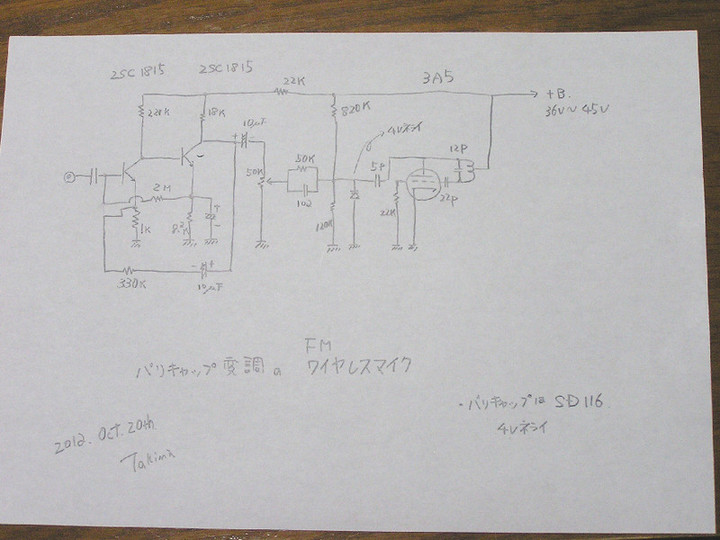 2SC1815 2SC1815
22K
3A5
+B.
36V~45V
220K
18K
820K
10μF
4Vネライ
12P
50K
5P
50K
2M
102
22K
22P
1K
8.2K
120K
330K
10μF
FM
バリキャップ変調の ワイヤレスマイク
・バリキャップは SD116
4Vネライ
2012. Oct. 20th